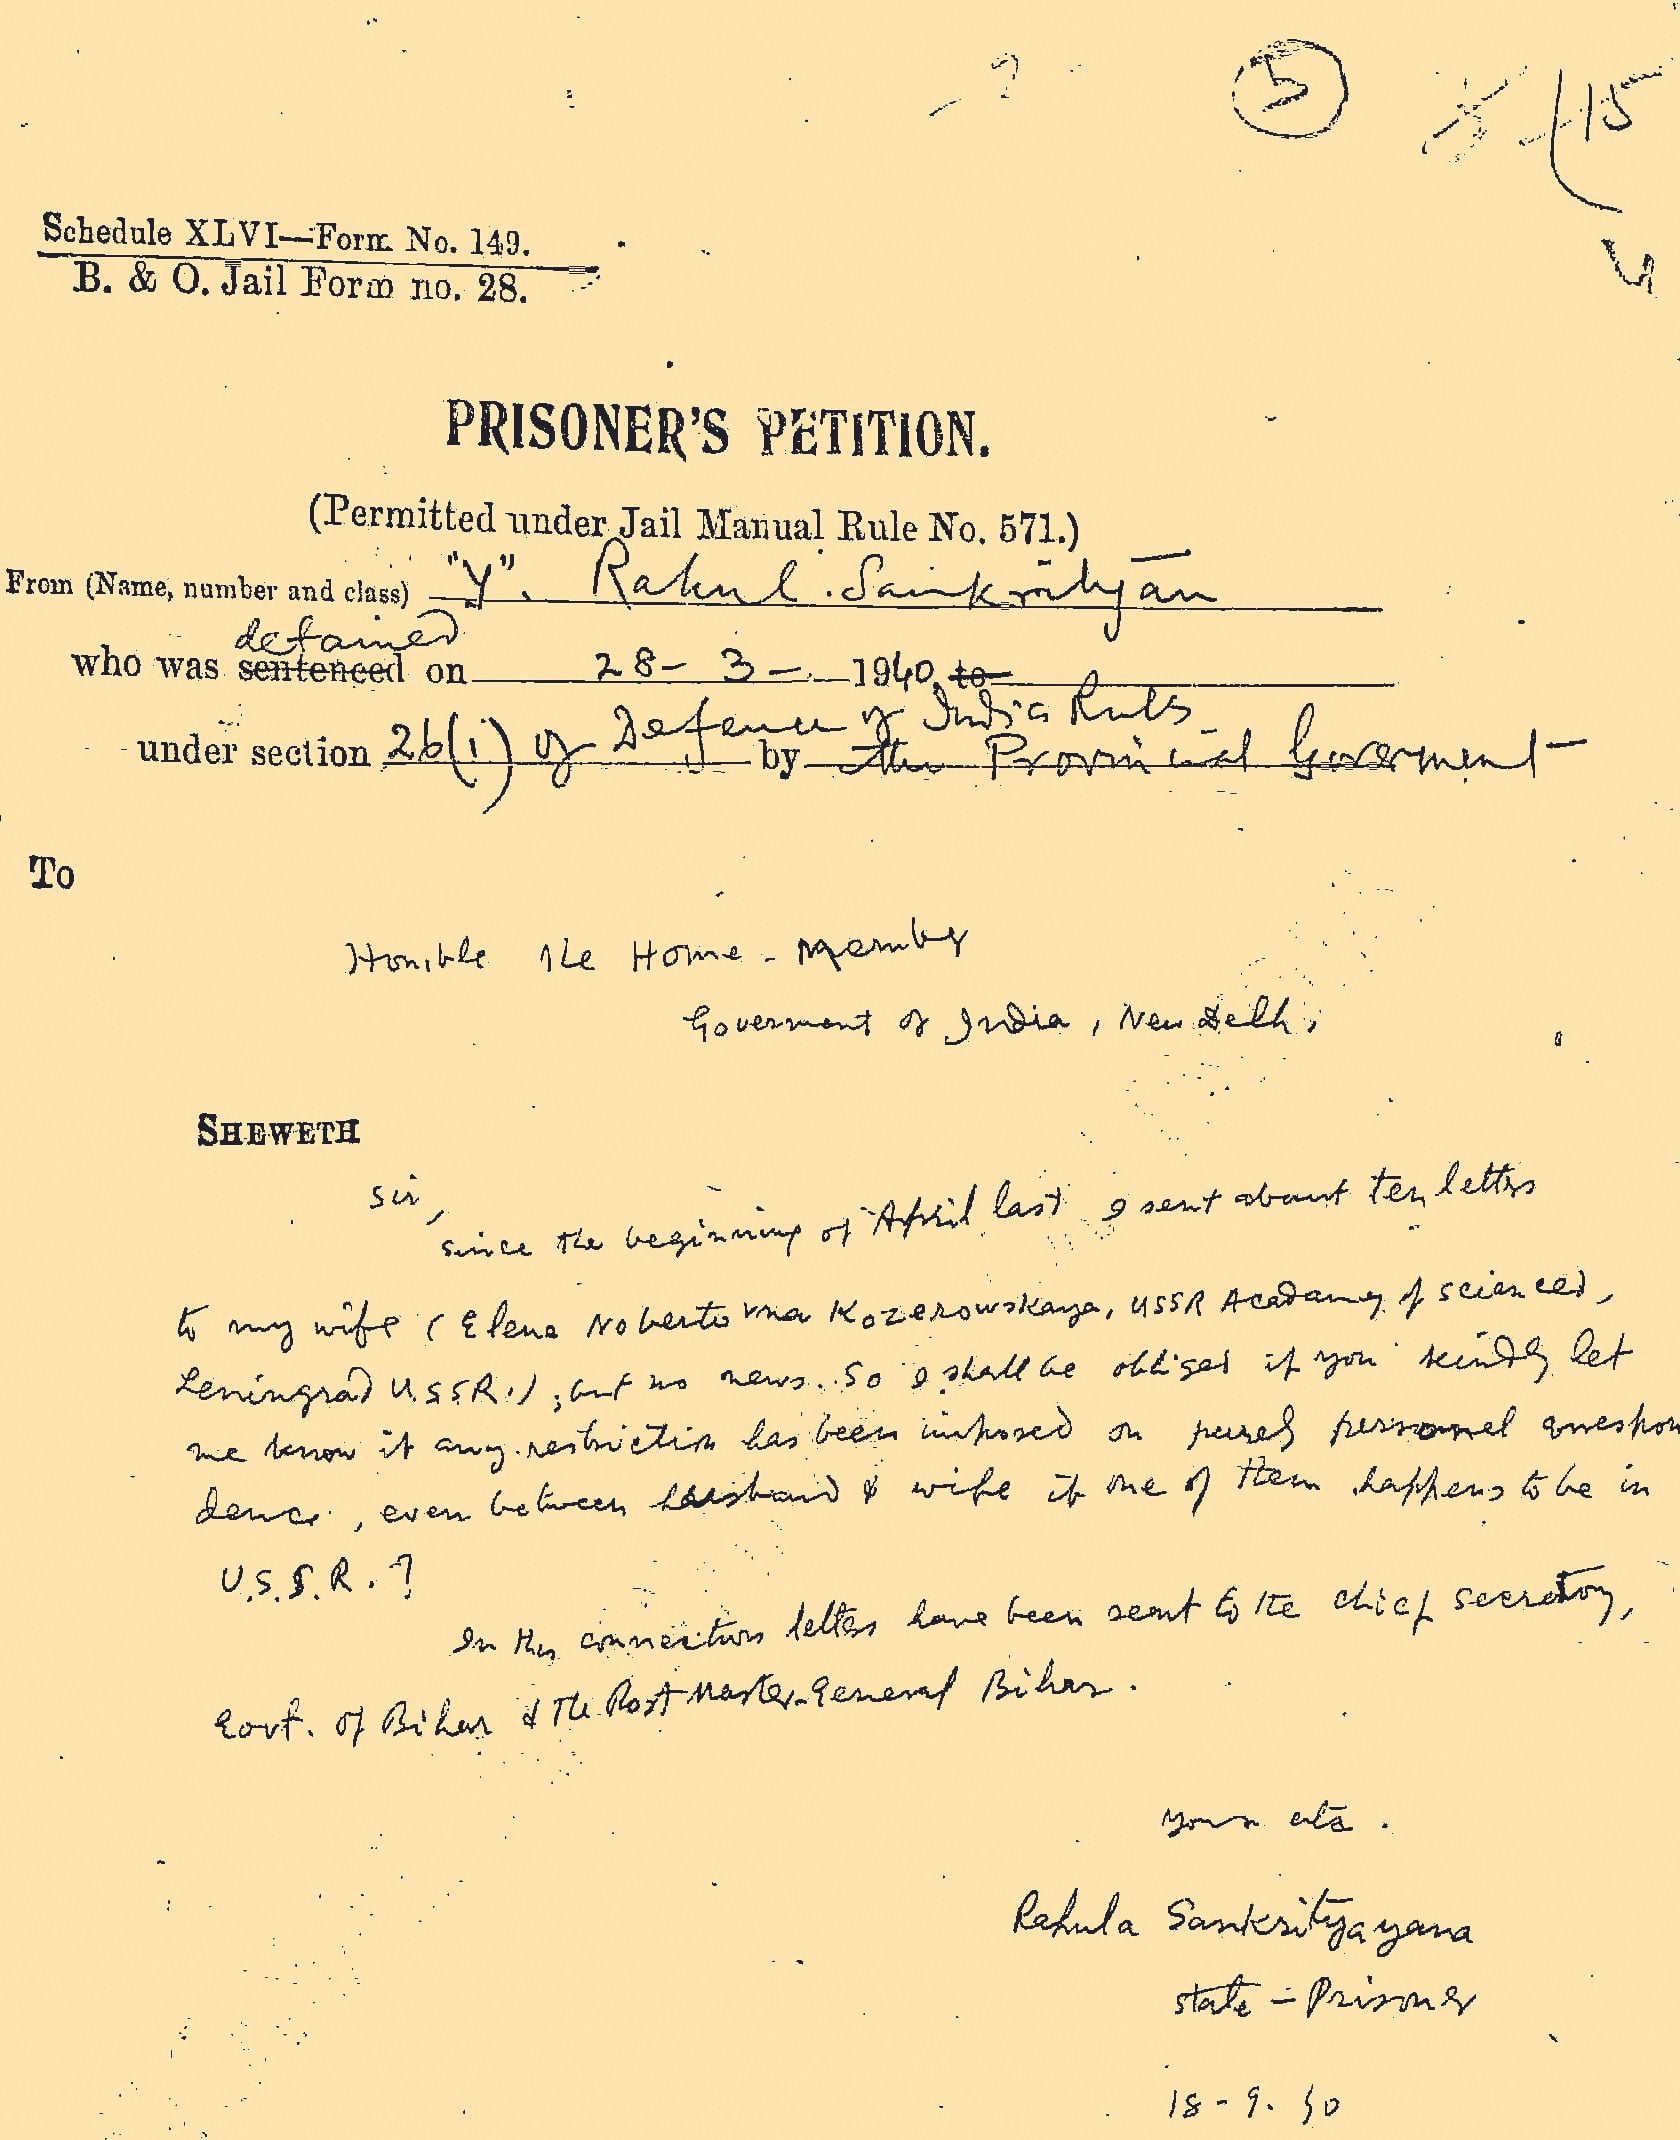 5
15
Schedule XLVI—Form No. 149.
B. & O. Jail Form no. 28.
PRISONER'S PETITION.
(Permitted under Jail Manual Rule No. 571.)
From (Name, number and class) "Y". Rahul. Sankrityan
detained
who was sentenced on 28-3-1940 to
under section 26(i) of Defence of India Rules by the Provincial Goverment
To
Hon'ble the Home-Member
Goverment of India, New Delhi,
SHEWETH
Sir,
since the beginning of April last I sent about ten letters
to my wife (Elena Nobertovna Kozerowskaya, USSR Academy of sciences,
Leningrad U.S.S.R.), but no news. So I shall be obliged if you kindly let
me know if any restriction has been imposed on purely personnel quespon
dence, even between husband & wife if one of them happens to be in
U.S.S.R.?
In this connection letters have been sent to the chief secretory,
Govt. of Bihar & the Post Master-General Bihar.
yours etc.
Rahula Sankrityayana
state-Prisoner
18-9.40